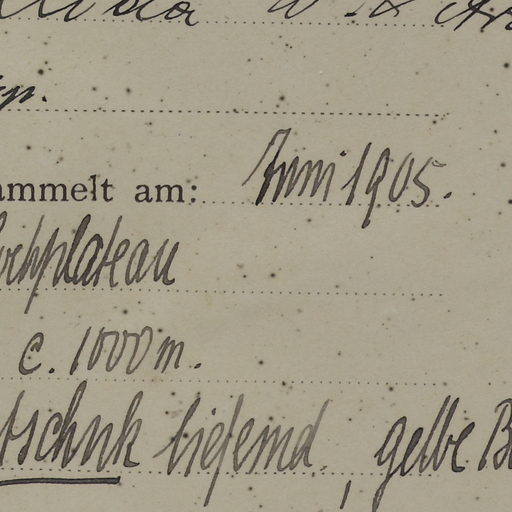 ammelt am: Juni 1905.
ochplateau
c. 1000 m.
tschuk liefernd, gelbe B